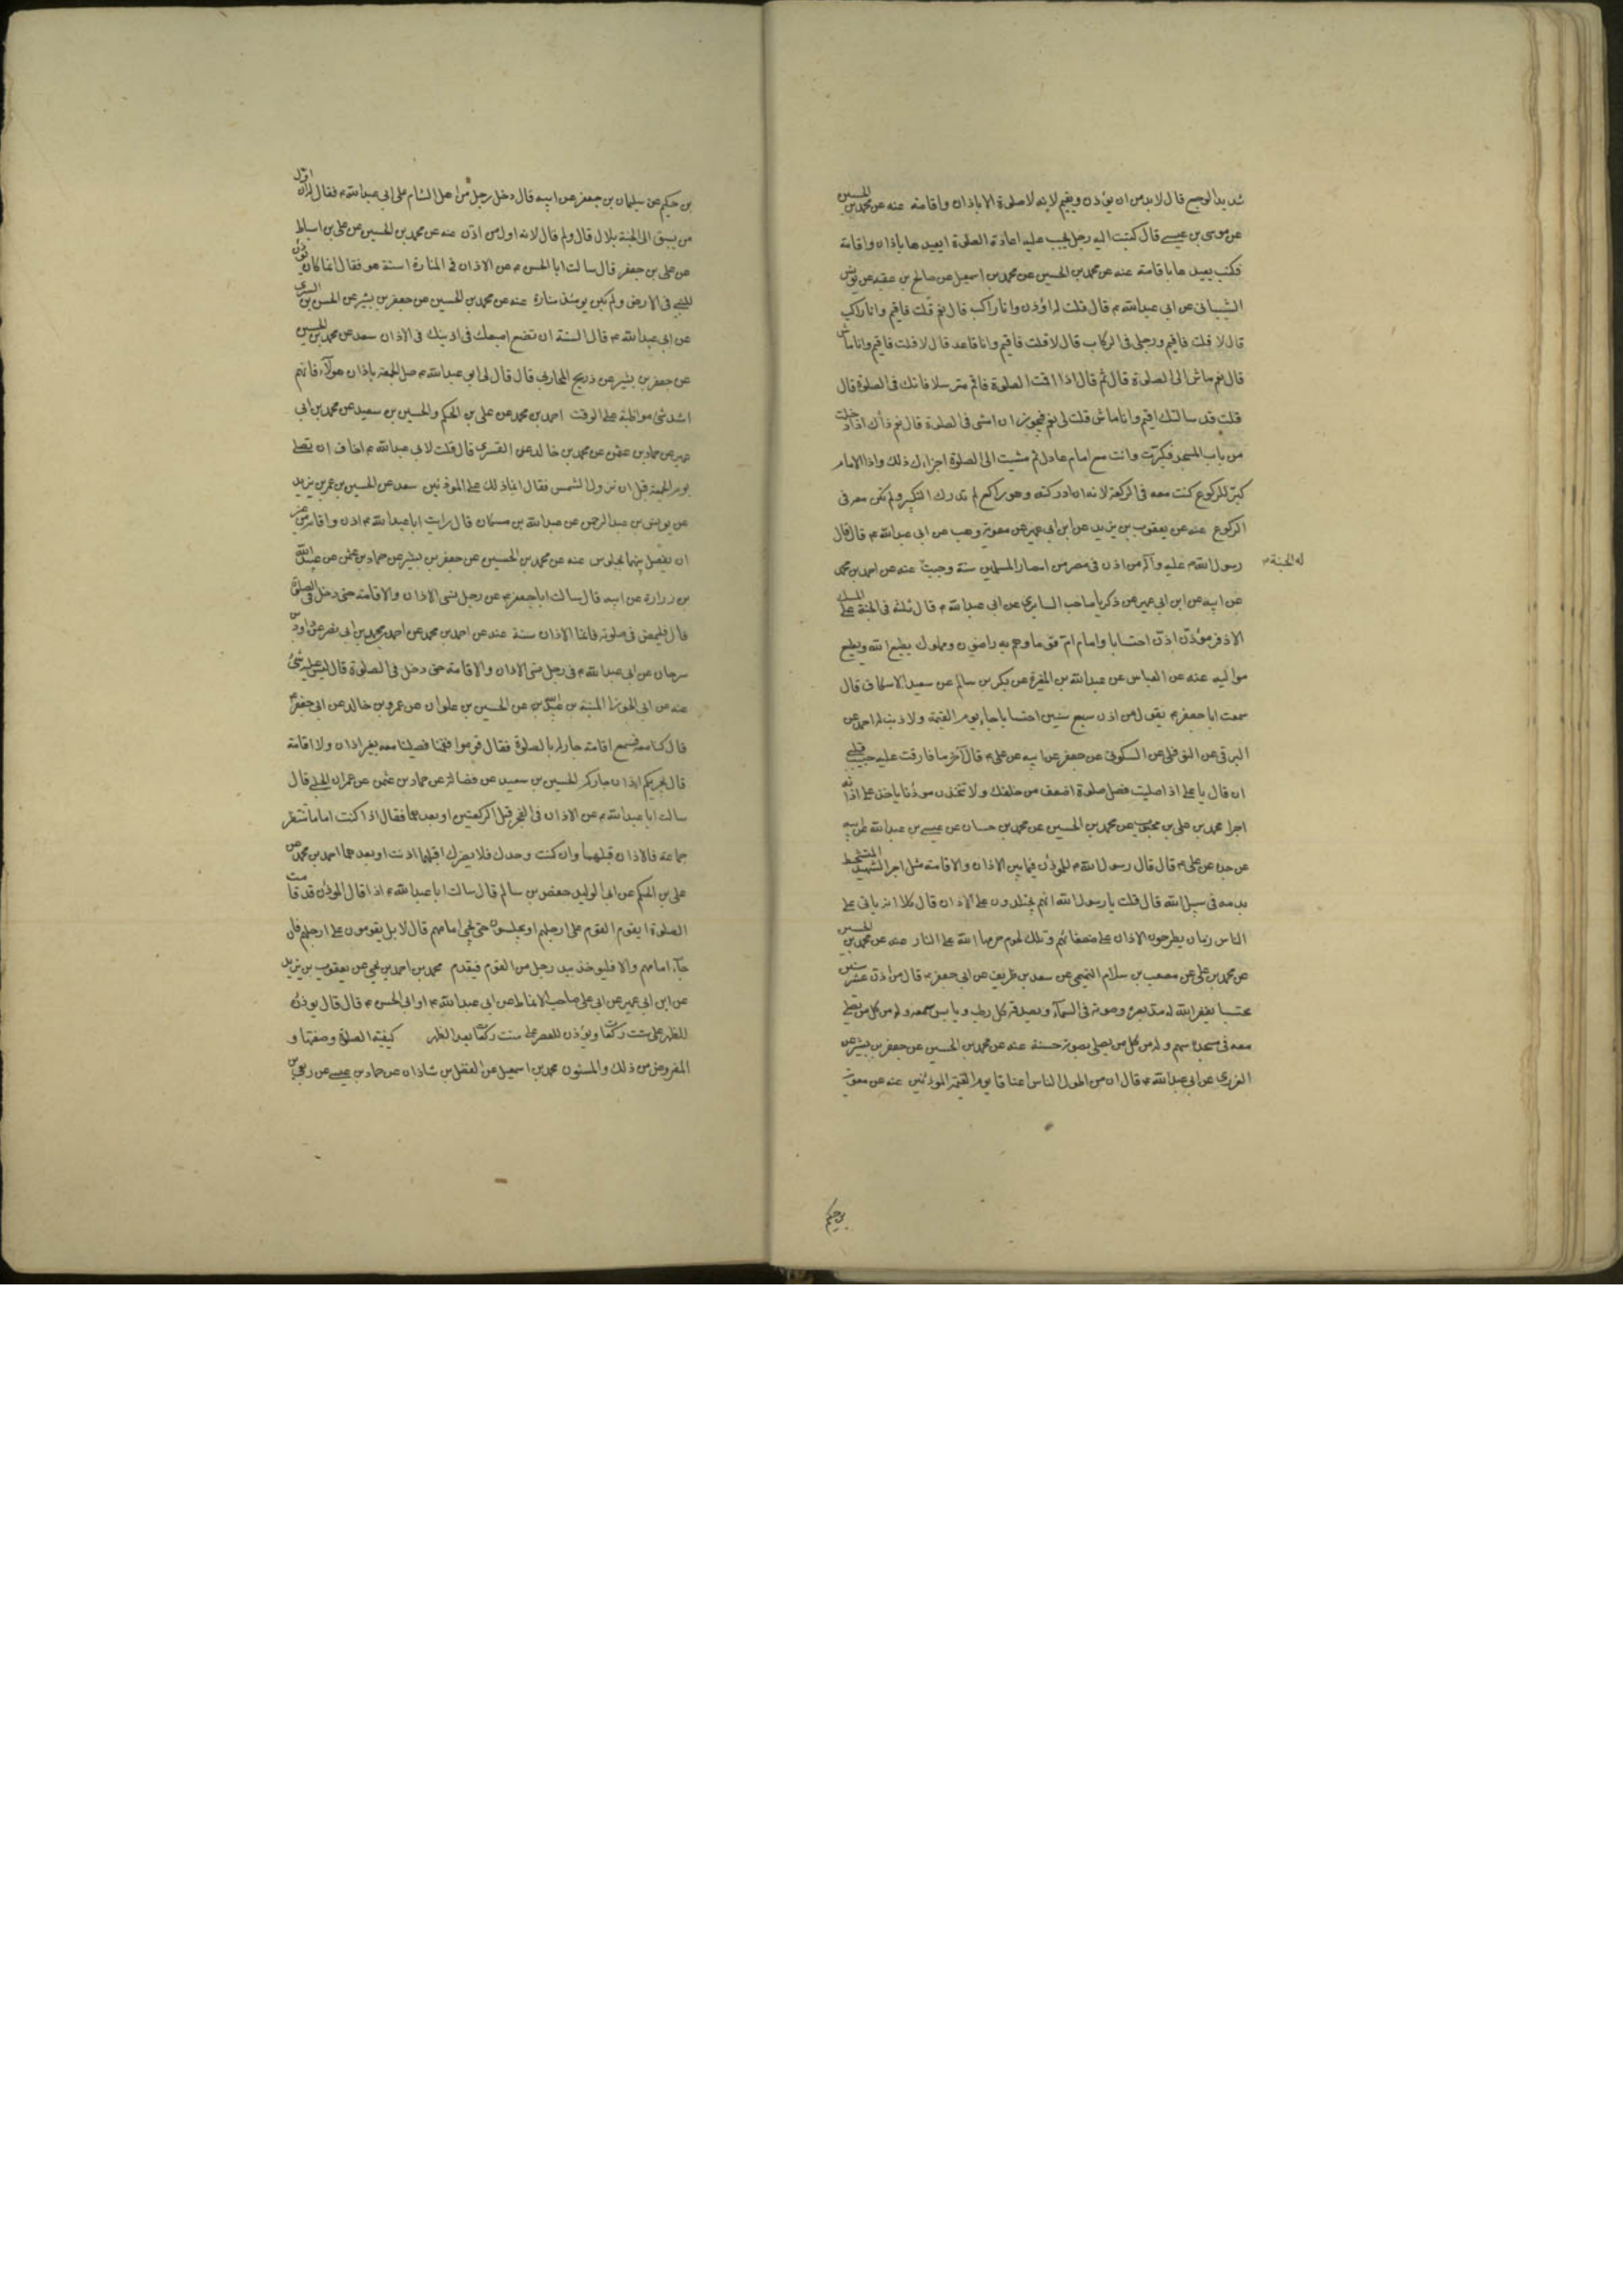 شديد الوجع قال لابد من ان يؤذن ويقيم لانه لا صلوة الا باذان واقامة عنه عن محمد بن الحسين
عن موسى بن عيسى قال كتبت اليه رجل يجب عليه اعادة الصلوة ايعيدها باذان واقامة
فكتب يعيدها باقامة عنه عن محمد بن الحسين عن محمد بن اسمعيل عن صالح بن عقبه عن يونس
الشيبانى عن ابى عبدالله ع قال قلت له اؤذن وانا راكب قال نعم قلت فاقيم وانا راكب
قال لا قلت فاقيم ورجلى فى الركاب قال لا قلت فاقيم وانا قاعد قال لا قلت فاقيم وانا ماش
قال نعم ماش الى الصلوة قال ثم قال اذا اقمت الصلوة فاقم مترسلا فانك فى الصلوة قال
قلت قد سالتك اقيم وانا ماش قلت لى نعم فيجوز ان امشى فى الصلوة قال نعم اذا دخلت
من باب المسجد فكبرت وانت مع امام عادل ثم مشيت الى الصلوة اجزاءك ذلك واذا الامام
كبر للركوع كنت معه فى الركعة لانه ان ادركته وهو راكع لم تدرك التكبير ولم تكن معه فى
الركوع عنه عن يعقوب بن يزيد عن ابن ابى عمير عن معوية وهب عن ابى عبدالله ع قال قال
رسول الله صلى الله عليه وآله من اذن فى مصر من امصار المسلمين سنة وجبت عنه عن احمد بن محمد
له الجنة
عن ابيه عن ابن ابى عمير عن ذكريا صاحب السابرى عن ابى عبدالله ع قال ثلثة فى الجنة على المسك
الاذفر مؤذن اذن احتسابا وامام ام قوما وهم به راضون ومملوك يطيع الله ويطيع
مواليه عنه عن العباس عن عبدالله بن المغيرة عن بكر بن سالم عن سعيد الاسكاف قال
سمعت ابا جعفر ع يقول من اذن سبع سنين احتسابا جاء يوم القيمة ولا ذنب له احمد عن
البرقى عن النوفلى عن السكونى عن جعفر عن ابيه عن على ع قال آخر ما فارقت عليه حبيب قلبى
ان قال يا على اذا صليت فصل صلوة اضعف من خلفك ولا تتخذن موذنا ياخذ على اذانه
اجرا محمد بن على بن محبوب عن محمد بن الحسين عن محمد بن حسان عن عيسى بن عبدالله عن ابيه
عن جده عن على ع قال قال رسول الله ص للموذن فيما بين الاذان والاقامة مثل اجر الشهيد المتشحط
بدمه فى سبيل الله قال قلت يا رسول الله انهم يجتلدون على الاذان قال كلا انه ياتى على
الناس زمان يطرحون الاذان على ضعفائهم وتلك لحوم حرمها الله على النار عنه عن محمد بن الحسين
عن محمد بن على عن مصعب بن سلام التميمى عن سعد بن طريف عن ابى جعفر ع قال من اذن عشر سنين
محتسبا يغفر الله له مد بصره وصوته فى السماء ويصدقه كل رطب ويابس سمعه وله من كل من يصلى
معه فى مسجده سهم وله من كل من يصلى بصوته حسنة عنه عن محمد بن الحسين عن جعفر بن بشير عن
العزرمى عن ابى عبدالله ع قال ان من اطول الناس اعناقا يوم القيمة الموذنين عنه عن معوية
بن حكيم
بن حكيم عن سليمان بن جعفر عن ابيه قال دخل رجل من اهل الشام على ابى عبدالله ع فقال له ان اول
من يسبق الى الجنة بلال قال ولم قال لانه اول من اذن عنه عن محمد بن الحسين عن على بن اسباط
عن على بن جعفر قال سالت ابا الحسن ع عن الاذان فى المنارة اسنة هو فقال انما كان يؤذن
للنبى فى الارض ولم يكن يومئذ منارة عنه عن محمد بن الحسين عن جعفر بن بشير عن الحسن بن السرى
عن ابى عبدالله ع قال السنة ان تضع اصبعك فى اذنيك فى الاذان سعد عن محمد بن الحسين
عن جعفر بن بشير عن ذريح المحاربى قال قال لى ابو عبدالله ع صل الجمعة باذان هولاء فانهم
اشد شئ مواظبة على الوقت احمد بن محمد عن على بن الحكم والحسين بن سعيد عن محمد بن ابى
عمير عن حماد بن عثمن عن محمد بن خالد عن القسرى قال قلت لابى عبدالله ع اخاف ان نصلى
يوم الجمعة قبل ان تزول الشمس فقال انما ذلك على الموذنين سعد عن الحسين بن عمر بن يزيد
عن يونس بن عبدالرحمن عن عبدالله بن مسكان قال رايت ابا عبدالله ع اذن واقام من غير
ان يفصل بينهما بجلوس عنه عن محمد بن الحسين عن جعفر بن بشير عن حماد بن عثمن عن عبيدالله
بن زرارة عن ابيه قال سالت ابا جعفر ع عن رجل نسى الاذان والاقامة حتى دخل فى الصلوة
قال فليمض فى صلوته فانما الاذان سنة عنه عن احمد بن محمد عن احمد بن محمد بن ابى نصر عن داود بن
سرحان عن ابى عبدالله ع فى رجل نسى الاذان والاقامة حتى دخل فى الصلوة قال ليس عليه شئ
عنه عن ابى الجوزا المنبه بن عبدالله عن الحسين بن علوان عن عمرو بن خالد عن ابى جعفر ع
قال كنا معه فسمع اقامة جار له بالصلوة فقال قوموا فقمنا فصلينا معه بغير اذان ولا اقامة
قال يجزيكم اذان جاركم الحسين بن سعيد عن فضالة عن حماد بن عثمن عن عمران الحلبى قال
سالت ابا عبدالله ع عن الاذان فى الفجر قبل الركعتين او بعدهما فقال اذا كنت اماما تنتظر
جماعة فالاذان قبلهما وان كنت وحدك فلا يضرك اقبلهما اذنت او بعدهما احمد بن محمد عن
على بن الحكم عن ابى الوليد حفص بن سالم قال سالت ابا عبدالله ع اذا قال الموذن قد قامت
الصلوة ايقوم القوم على ارجلهم او يجلسون حتى يجئ امامهم قال لا بل يقومون على ارجلهم فان
جاء امامهم والا فليوخذ بيد رجل من القوم فيقدم محمد بن احمد بن يحيى عن يعقوب بن يزيد
عن ابن ابى عمير عن ابى على صاحب الانماط عن ابى عبدالله ع او ابى الحسن ع قال قال يوذن
للظهر على ست ركعات ويؤذن للعصر على ست ركعات بعد الظهر كيفية الصلوة وصفتها و
المفروض من ذلك والمسنون محمد بن اسمعيل عن الفضل بن شاذان عن حماد بن عيسى عن ربعى بن